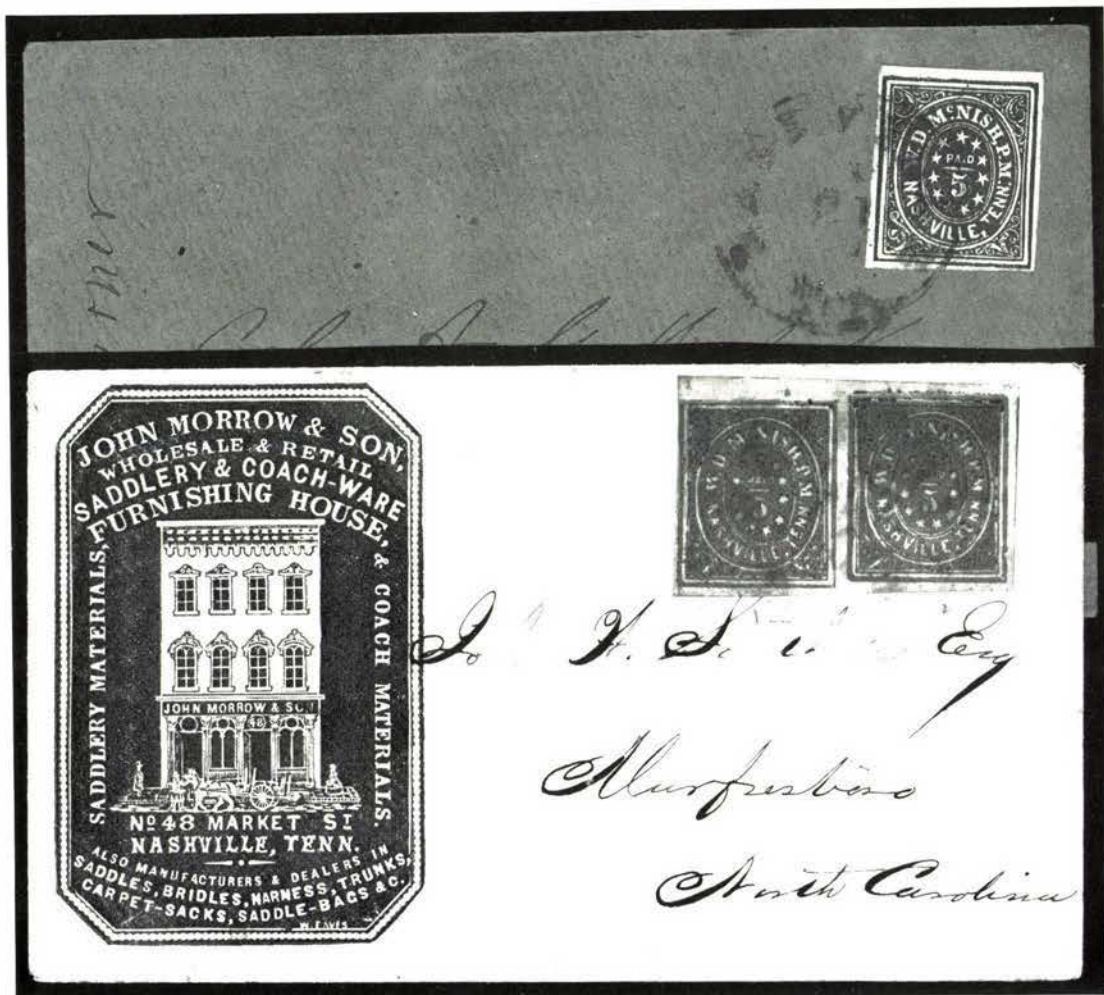 W. D. McNISH, P. M.
PAID
5
NASHVILLE, TENN.
JOHN MORROW & SON,
WHOLESALE & RETAIL
SADDLERY & COACH-WARE
FURNISHING HOUSE,
SADDLERY MATERIALS,
& COACH MATERIALS.
JOHN MORROW & SON
48
No 48 MARKET ST
NASHVILLE, TENN.
ALSO MANUFACTURERS & DEALERS IN
SADDLES, BRIDLES, HARNESS, TRUNKS,
CARPET-SACKS, SADDLE-BAGS &C.
W. EAVES
W. D. McNISH, P. M.
PAID
5
NASHVILLE, TENN.
W. D. McNISH, P. M.
5
NASHVILLE, TENN.
H. Esq
Murfresboro
North Carolina